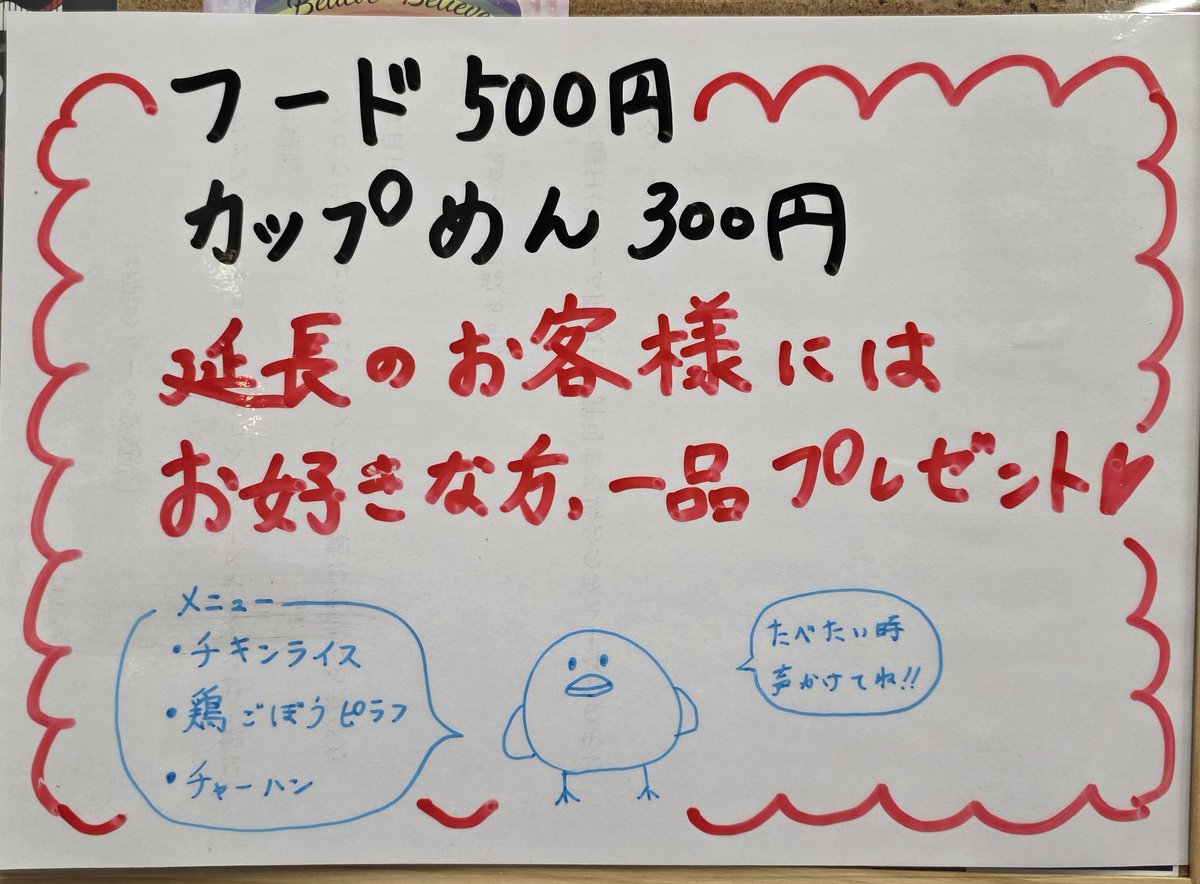 Believe Believe
フード 500円
カップめん 300円
延長のお客様には
お好きな方、一品プレゼント♥
メニュー
・チキンライス
・鶏ごぼうピラフ
・チャーハン
たべたい時
声かけてね!!